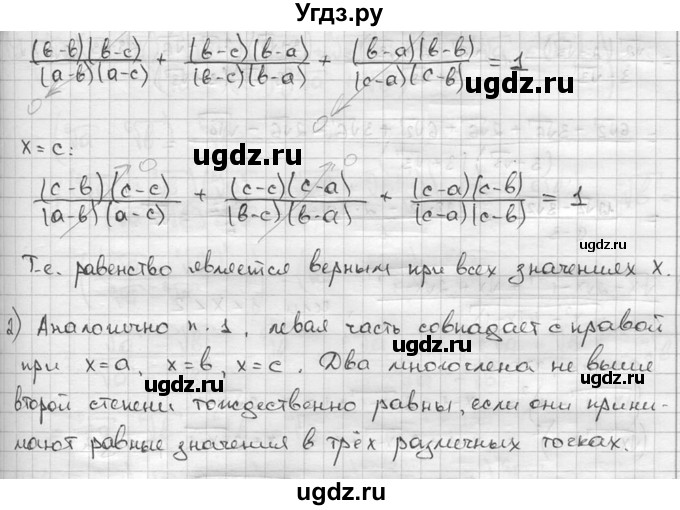 Угдз.ру
(в-в)(в-с)/(а-в)(а-с) + (в-с)(в-а)/(в-с)(в-а) + (в-а)(в-в)/(с-а)(с-в) = 1
0 0
ugdz.ru
x=c: 0 0
ugdz.ru
(с-в)(с-с)/(а-в)(а-с) + (с-с)(с-а)/(в-с)(в-а) + (с-а)(с-в)/(с-а)(с-в) = 1
ugdz.ru
Т.е. равенство является верным при всех значениях х.
ugdz.ru
2) Аналогично п.1, левая часть совпадает с правой
ugdz.ru
при х=а, х=в, х=с. Два многочлена не выше
ugdz.ru
второй степени тождественно равны, если они прини-
мают равные значения в трёх различных точках.
ugdz.ru
ugdz.ru